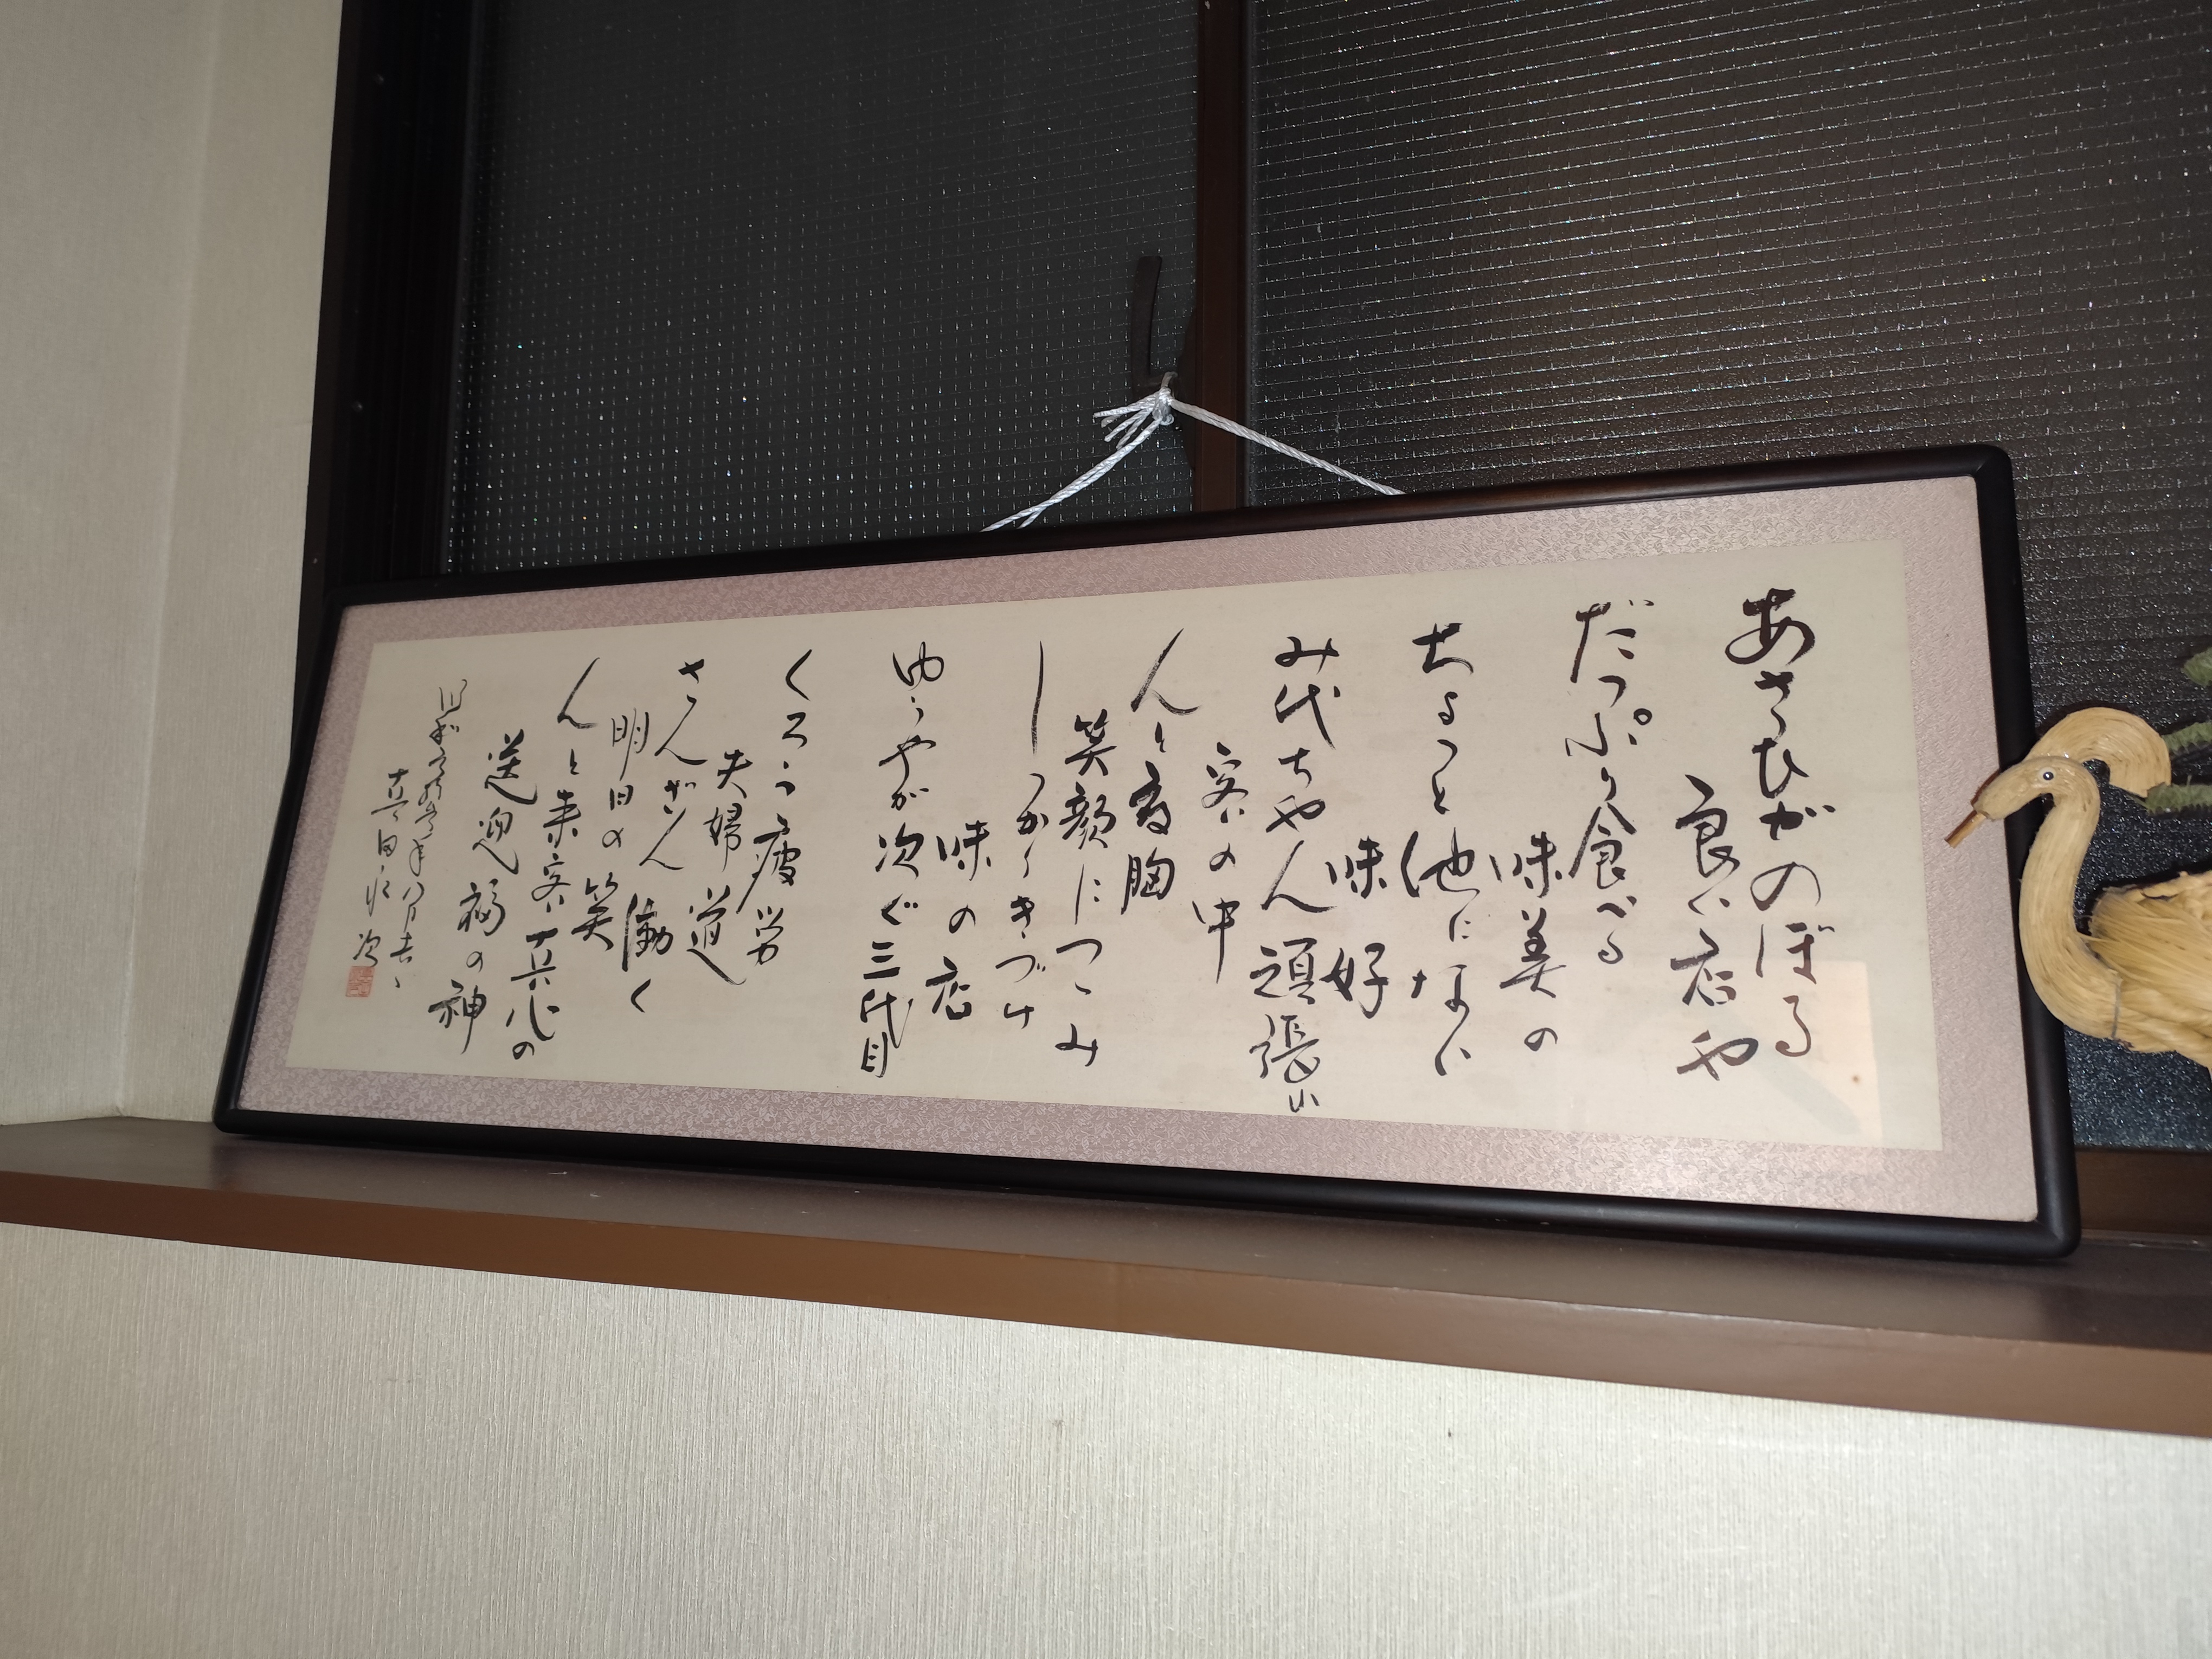 あさひがのぼる
良い店や
だっぷり食べる
味美の
ちょっと他にない
味好
み代ちゃん頑張い
客の中
んと度胸
笑顔につゝみ
しっかりきづけ
味の店
ゆうやが次ぐ三代目
くろう疲労
夫婦道
さんざん働く
明日の笑
んと来客真心の
送迎福の神